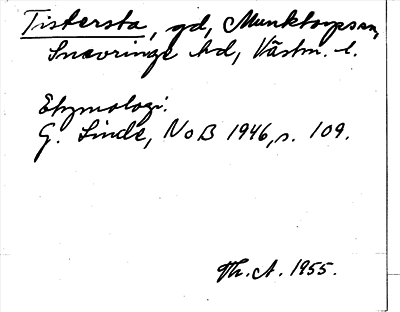 Tistersta, gd, Munktorps sn,
Snevringe hd, Västm. l.
Etymologi.
G. Linde, NoB 1946, s. 109.
Th. A. 1955.